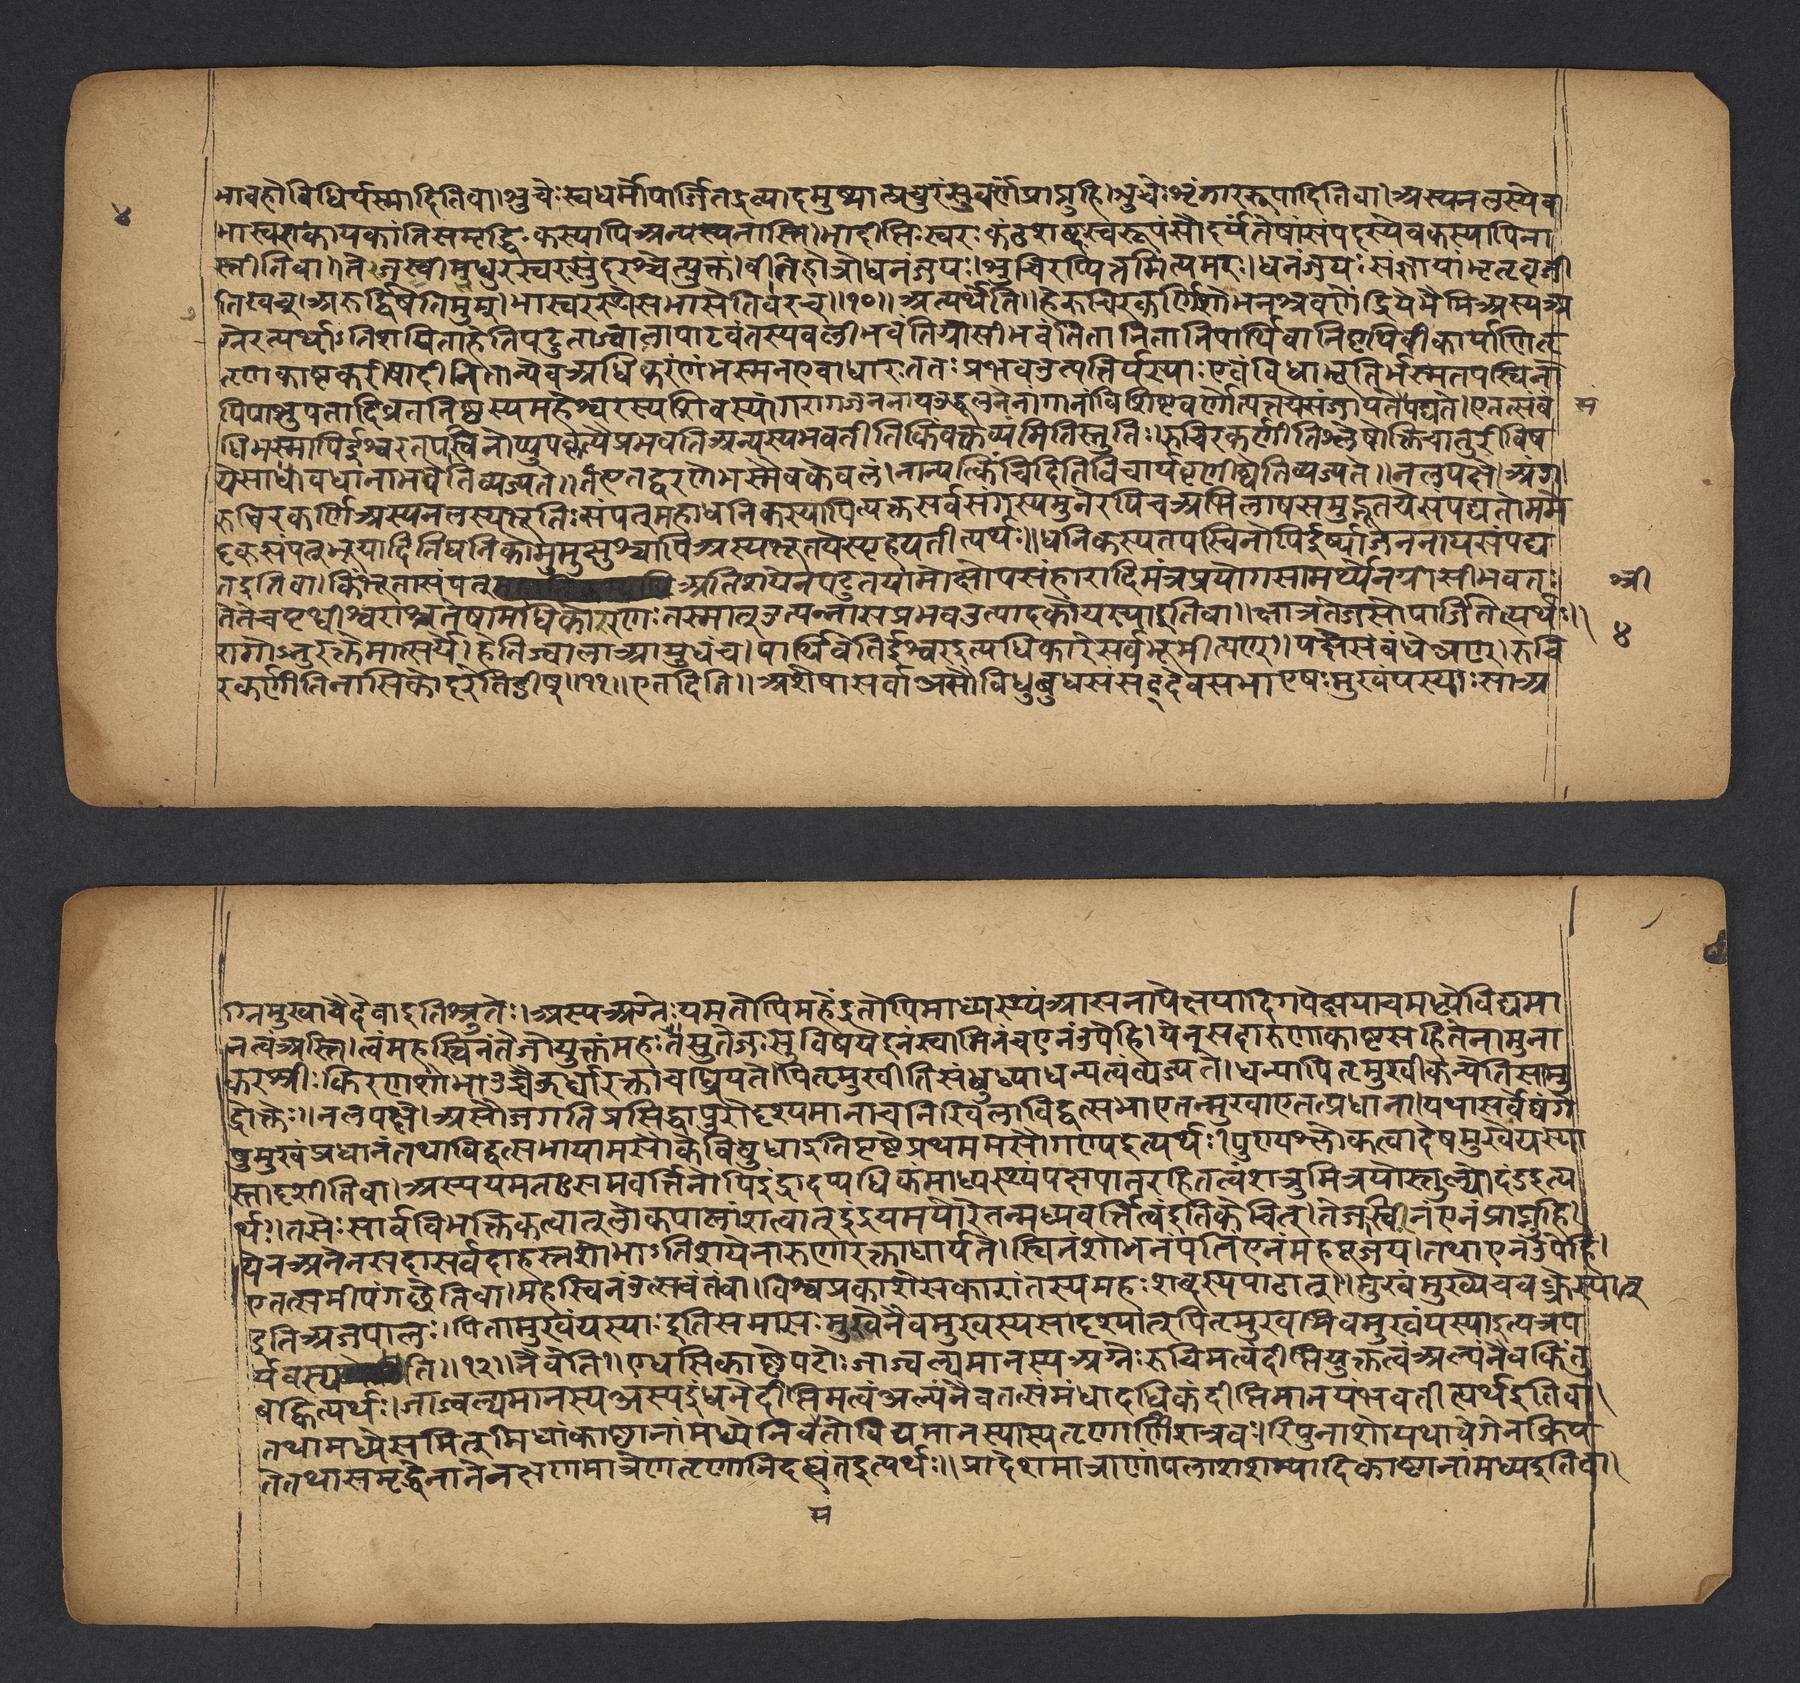 ४
भावहोविधिर्यस्मादितिवा।शुचेःस्वधर्मोपार्जितद्रव्यादमुष्यात्प्रचुरंसुवर्णंप्राप्नुहि।शुचेःशृंगाररूपादितिवा।अस्यनलस्यैव
भास्वरांकायकांतिसमृद्धिःकस्यापिअन्यस्यनास्ति।भादीप्तिःस्वरःकंठशब्दःस्वरूपंसौंदर्यंतेषांसंपदस्यैवकस्यापिना
स्तीतिवा।तेजस्वीमधुरस्वरसुंदरश्चेत्युक्तं।वीतिहोत्रोधनंजयः।शुचिरप्पित्तमित्यमरः।धनंजयःसंज्ञायांभृतॄवृजी
तिखच्।अरुर्द्विषेतिमुम्।भास्वरस्थेशभासेतिवरच्।।१०।।अत्यर्थेति।।हेरुचिरकर्णिशोभनश्रवणेंद्रियेभैमिअस्यअ
ग्नेरत्यर्थाऽतिशयिताहेतिपटुताज्वालापाटवंतस्यकवलीभवंतिग्रासीभवंतितानितानिपार्थिवानिपृथिवीकार्याणितॄ
तृणकाष्टकरीषादीनितान्येवअधिकरणंभस्मनएवाधारःततःप्रभवउत्पत्तिर्यस्याःएवंविधाभूतिर्भस्मतपस्विनो
पिपाशुपतादिव्रतनिष्ठस्यमहेश्वरस्यशिवस्यांगरागजननायउद्धूलनेनांगानांविशिष्टवर्णोत्पत्तयेसंजायतेपद्यते।एतत्संब
म
धिभस्मापिईश्वरतपस्विनोप्युपकृत्यैप्रभवतिअन्यस्यभवतीतिकिंवक्तव्यमितिस्तुतिः।रुचिरकर्णीतिश्लेषोक्तिचातुरीविष
येसाधोवधानाभवेतिव्यज्यते।।तेएतद्वरणेभस्मैवकेवलं।नान्यत्किंचिदितिविचार्यवृणीष्वेतिव्यज्यते।।नलपक्षे।अंग
रुचिरकर्णिअस्यनलस्यभूतिःसंपत्महाधनिकस्यापित्यक्तसर्वसंगस्यमुनेरपिचअभिलाषसमुद्भूतयेसंपद्यतेममे
दृक्संपत्भूयादितिधनिकोमुमुक्षुश्चापिअस्यभूतयेस्पृहयतीत्यर्थः।।धनिकस्यतपस्विनोपिईर्ष्याजननायसंपद्य
तइतिवा।किंभूतासंपत्अतिशयेनपटुतयामोक्षोपसंहारादिमंत्रप्रयोगसामर्थ्येनग्रासीभवतः
श्री
तेतेचपृथ्वीश्वराश्चतेषामधिकोरणःतस्मात्उत्पन्नासप्रभवउत्पादकोयस्याइतिवा।।क्षात्रतेजसोपार्जितेत्यर्थः।।
४
रागोऽनुरक्तेमात्सर्ये।हेतिज्वालाआयुधंच।पार्थिवेतिईश्वरइत्यधिकारेसर्वभूमीत्यण्।।पक्षेसंबंधेअण्।रुचि
रकर्णीतिनासिकोदरेतिङीष्।।११।।एतदिति।।अशेषासर्वाअसौविधुबुधसंसद्देवसभाएषःमुखंयस्याःसाअ
ग्निमुखावैदेवाइतिश्रुतेः।अस्यअग्नेःयमतोपिमहेंद्रतोपिमाध्यस्थ्यंआसनापेक्षयादिगपेक्षयाचमध्येविद्यमा
नत्वंअस्ति।त्वंमहस्विनंतेजोयुक्तंमहःतेसुतेजःसुविषयेइनंस्वामिनंचएनंउपेहि।येनसदारुणाकाष्टसहितेनामुना
करश्रीःकिरणशोभाउच्चैरूर्ध्वारक्ताचध्रियते।पितृमुखीतिसंबुध्याधन्यत्वंव्यज्यते।धन्यापितृमुखीकन्येतिसामु
द्रोक्तेः।।नलपक्षे।असौजगतिप्रसिद्धापुरोदृश्यमानाचनिखिलाविद्वत्सभाएतन्मुखाएतत्प्रधाना।यथासर्वेष्वंगे
षुमुखंप्रधानंतथाविद्वत्सभायामसौकेविबुधाइतिपृष्टेप्रथममसौगण्यइत्यर्थः।पुण्यश्लोकत्वादेषमुखेयस्या
स्तादृशीतिवा।अस्ययमतःसमवर्त्तिनोपिइंद्रादप्यधिकंमाध्यस्थ्यंपक्षपातरहितत्वंशत्रुमित्रयोस्तुल्योदंडइत्य
र्थः।।तसेःसार्वविभक्तिकत्वात्लोकपालांशत्वात्इंद्रयमयोरेतन्मध्यवर्त्तित्वंइतिकेचित्।तेजस्वीनंएनंप्राप्नुहि।
येनअनेनसहासर्वदाहस्तशोभाऽतिशयेनारुणारक्ताधार्यते।स्विनंशोभनंपतिंएनंमहपूजय।तथाएनंउपेहि।
एतत्समीपंगछेतिवा।महस्विनंउत्सवंतंवा।विश्वप्रकाशेसकारांतस्यमहःशब्दस्यपाठात्।।मुखंमुख्येचवक्त्रेस्यात्
इतिअजपालः।पितामुखंयस्याःइतिसमासःमुखेनैवमुखस्यसादृश्यात्पितृमुखमिवमुखंयस्याइत्यत्रप
र्यवस्यति।।१२।।नैवेति।।एधसिकाष्ठेपटोःजाज्वल्यमानस्यअग्नेःरुचिमत्वंदीप्तियुक्तत्वंअल्पंनैवकिंतु
बह्वित्यर्थः।जाज्वल्यमानस्यअस्यइंधनेदीप्तिमत्वंअल्पंनैवतत्संबंधादधिकंदीप्तिमानयंभवतीत्यर्थइतिवा।
तथामध्येसमित्समिधांकाष्ठानांमध्येनिवसतोविद्यमानस्यास्यतृणाणिशत्रवः।रिपुनाशोयथावेगेनक्रिय
तेतथासमृद्धेनानेनक्षणमात्रेणतृणानिदह्यंतइत्यर्थः।।प्रादेशमात्राणांपलाशशम्यादिकाष्ठानांमध्यइतिवा।
म